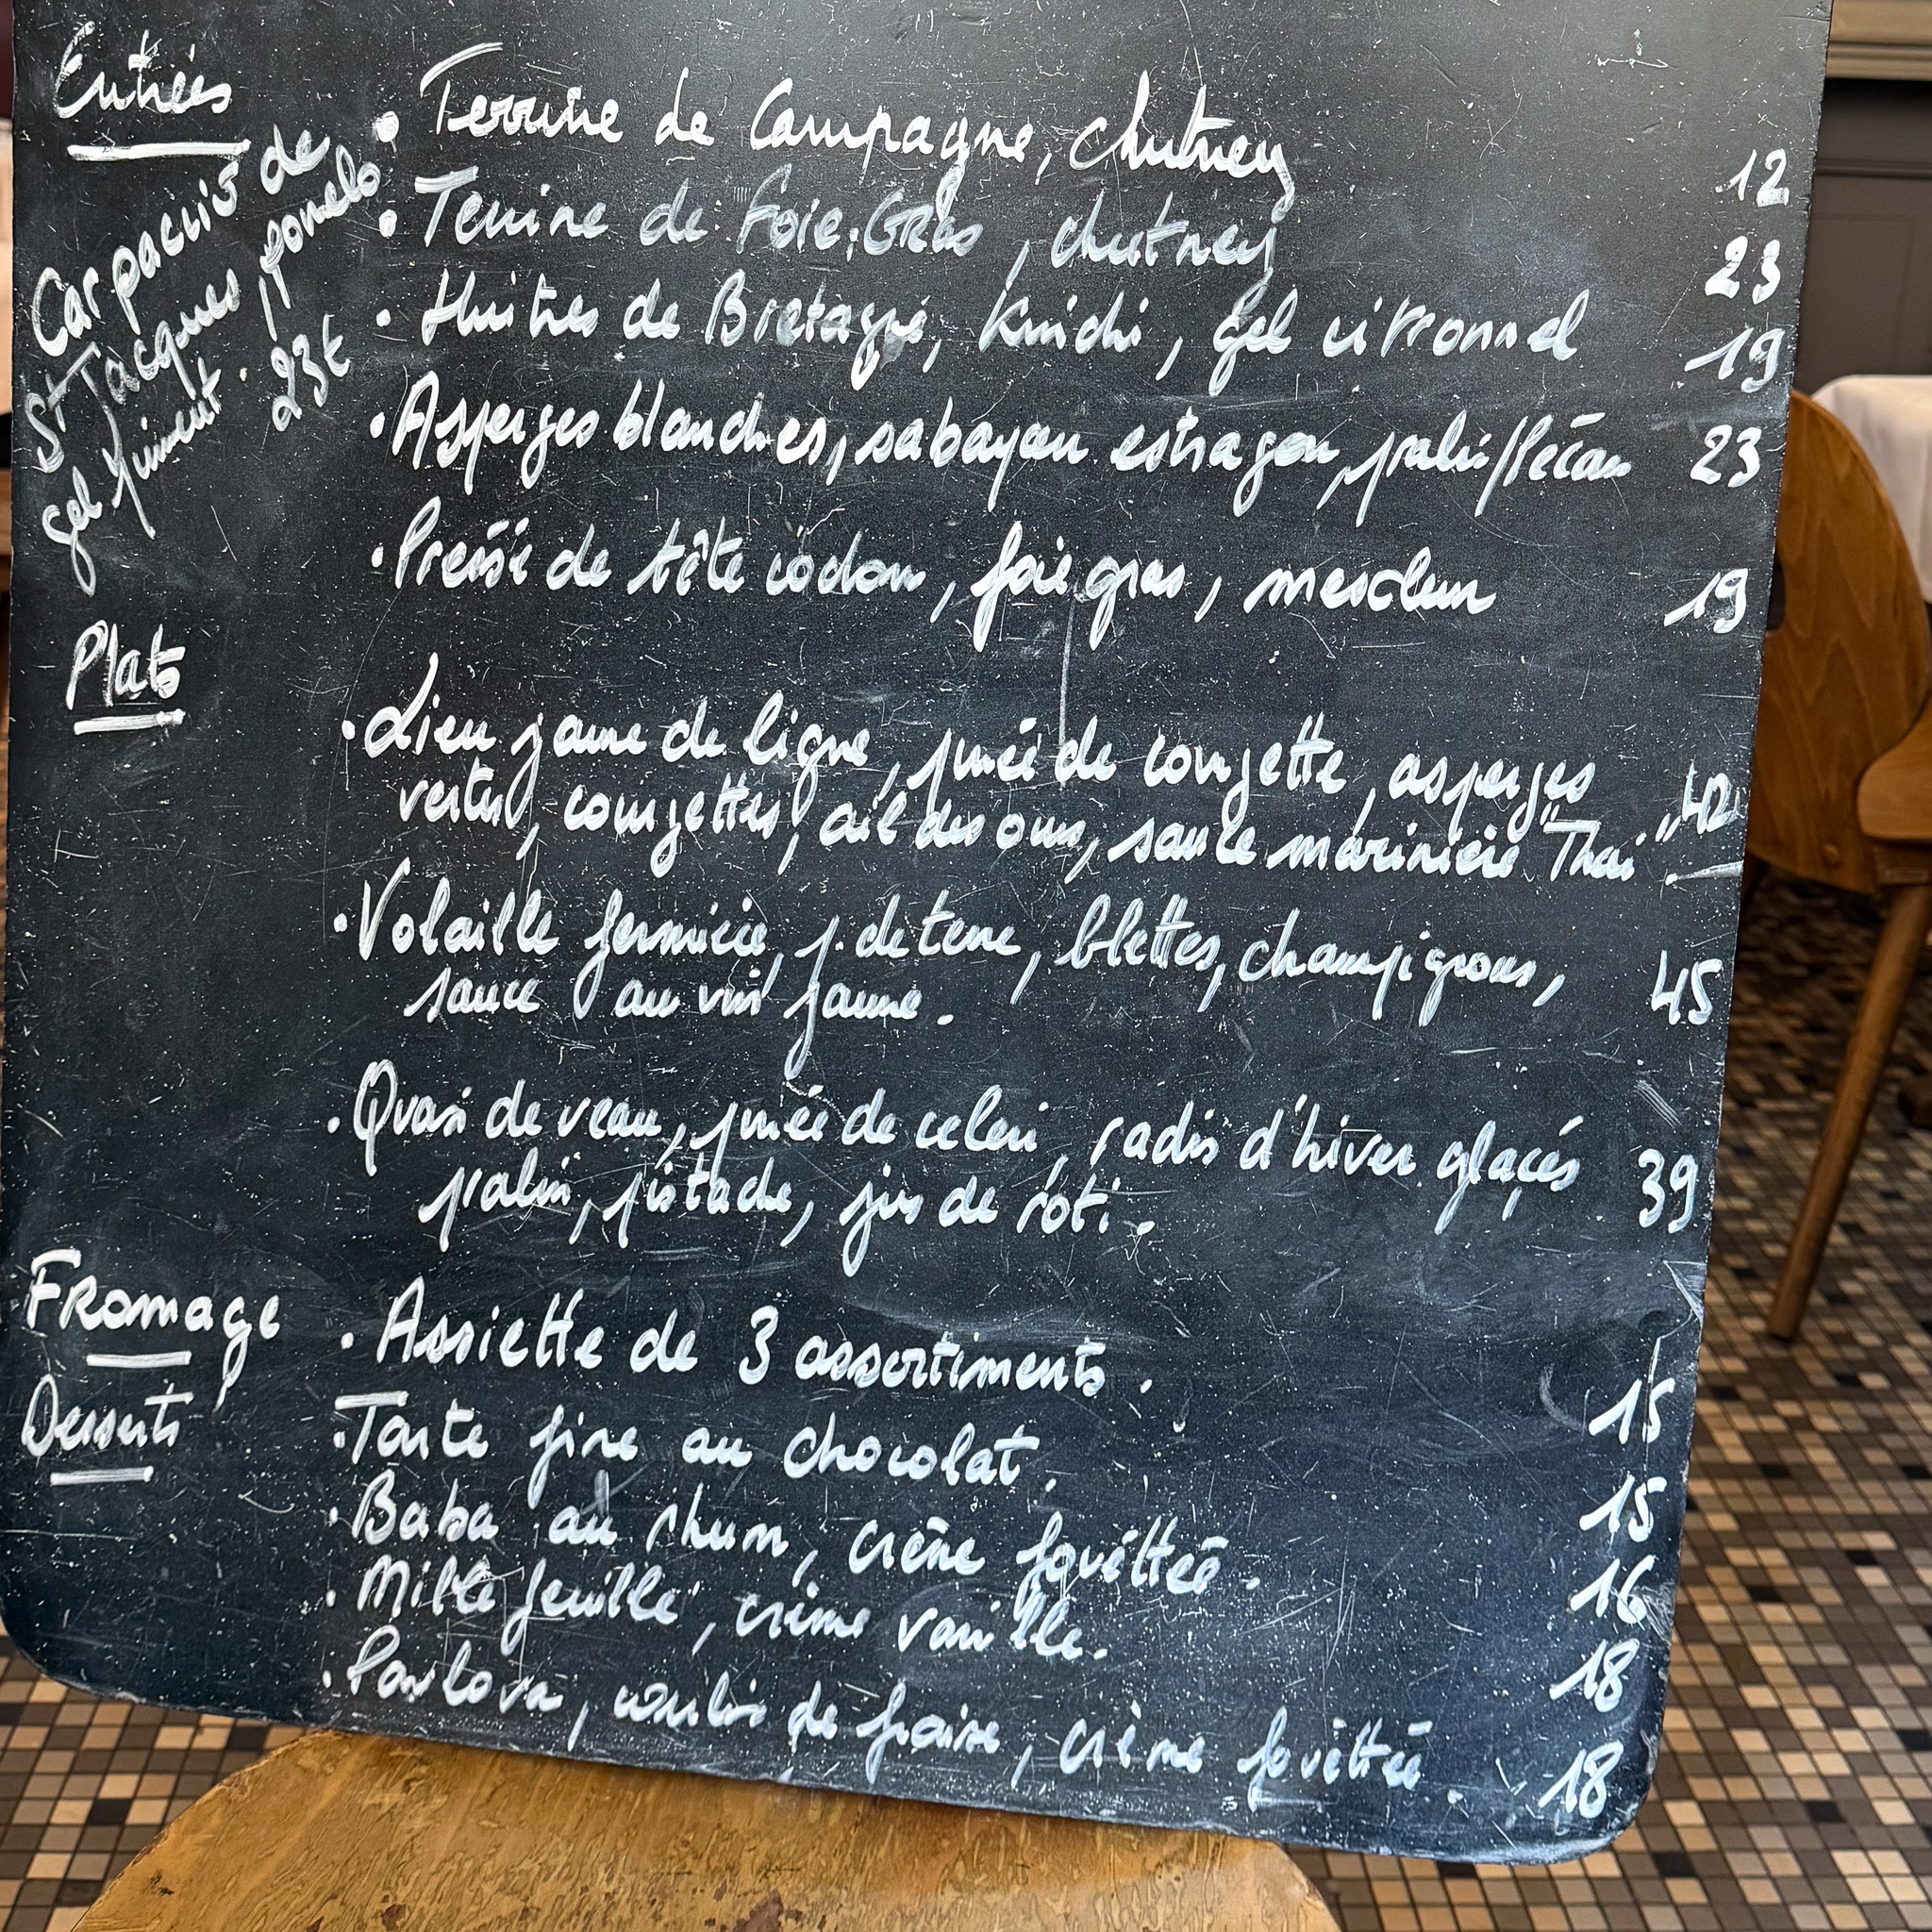 Entrées
• Terrine de Campagne, chutney 12
• Terrine de Foie Gras, chutney 23
• Huitres de Bretagne, Kimchi, gel citronnel 19
• Asperges blanches, sabayon estragon, pralin/Pécan 23
• Pressé de tête cochon, foie gras, mesclun 19
Carpaccio de
St Jacques pomelo
gel piment . 23€
Plats
• Lieu jaune de ligne, purée de courgette, asperges
vertes, courgettes, ail des ours, sauce marinière "Thaï". 42
• Volaille fermière, p. de terre, blettes, champignons, 45
sauce au vin jaune.
• Quasi de veau, purée de celeri, radis d'hiver glaçés 39
pralin, pistache, jus de rôti.
Fromage
• Assiette de 3 assortiments. 15
Desserts
• Tarte fine au chocolat. 15
• Baba au rhum, crème fouéttée. 16
• Mille feuille, crème vanille. 18
• Pavlova, coulis de fraise, crème fouéttée. 18